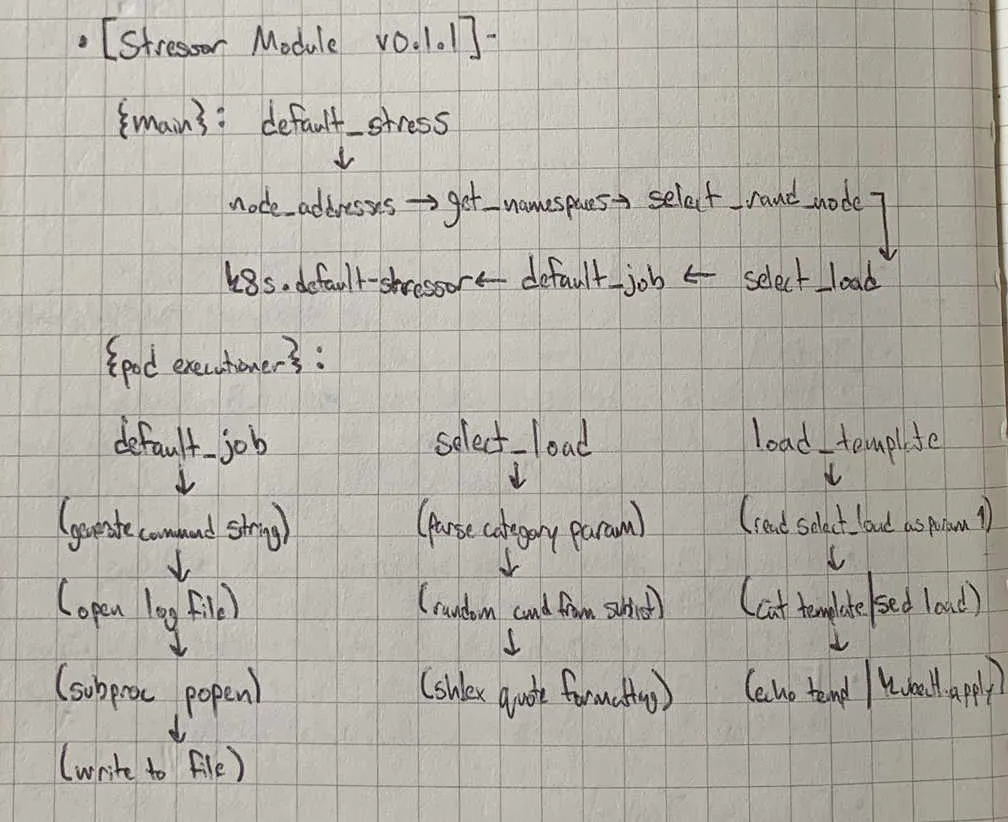 • [Stressor Module v0.1.1]-
{main}: default_stress
↓
node_addresses → get_namespaces → select_rand_node
↓
k8s.default-stressor ← default_job ← select_load
{pod executioner}:
default_job select_load load_template
↓ ↓ ↓
(generate command string) (parse category param) (read select_load as param 1)
↓ ↓ ↓
(open log file) (random cmd from sublist) (cat template/sed load)
↓ ↓ ↓
(subproc popen) (shlex quote formatting) (echo temp | kubectl apply)
↓
(write to file)